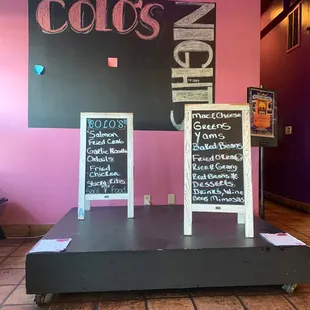 COLO'S
NIGHTS
COLO'S
Salmon
Fried Crab
Garlic Noodle
Oxtails
Fried
Chicken
Sticky Ribs
Soul Food
Mac & Cheese
Greens
Yams
Baked Beans
Fried Okra
Rice & Gravy
Red Beans
Desserts
Drinks
Wine
Beers Mimosas